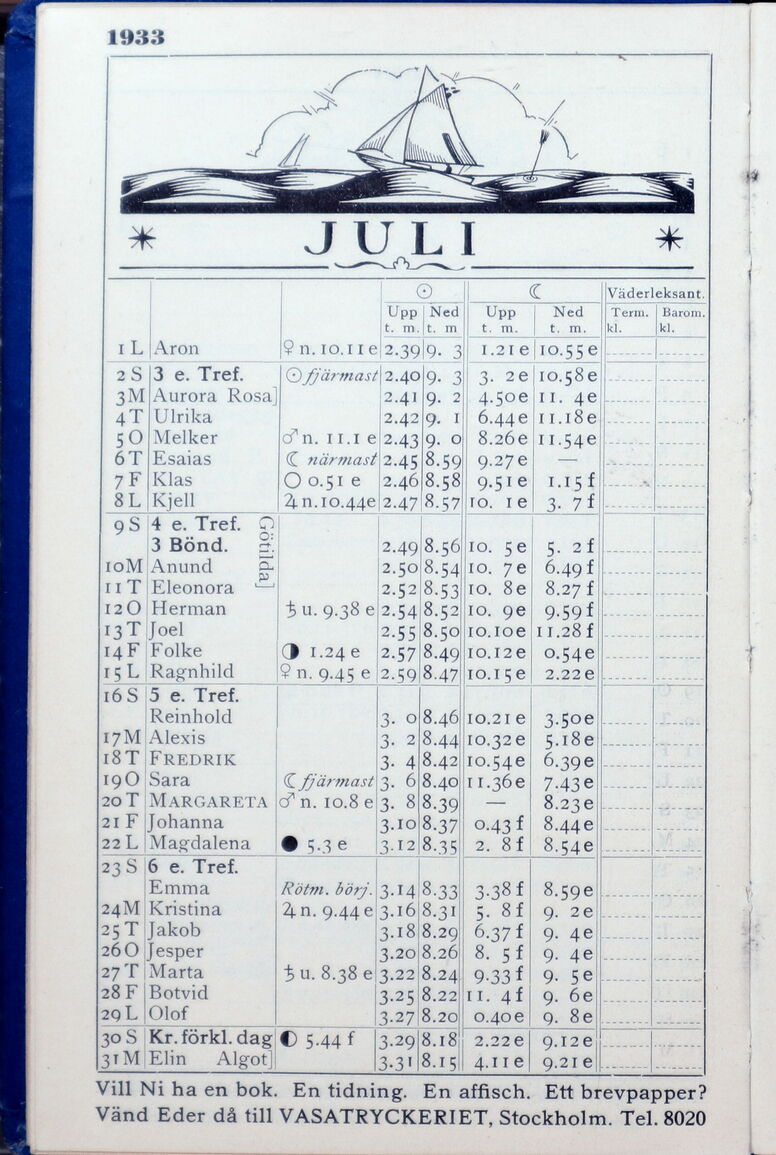 1933
JULI
☉ ☾ Väderleksant.
Upp Ned Upp Ned Term. Barom.
t. m. t. m t. m. t. m. kl. kl.
1 L Aron ♀ n. 10.11 e 2.39 9. 3 1.21 e 10.55 e
2 S 3 e. Tref. ☉ fjärmast 2.40 9. 3 3. 2 e 10.58 e
3 M Aurora Rosa] 2.41 9. 2 4.50 e 11. 4 e
4 T Ulrika 2.42 9. 1 6.44 e 11.18 e
5 O Melker ♂ n. 11.1 e 2.43 9. 0 8.26 e 11.54 e
6 T Esaias ☾ närmast 2.45 8.59 9.27 e —
7 F Klas ○ 0.51 e 2.46 8.58 9.51 e 1.15 f
8 L Kjell ♃ n. 10.44 e 2.47 8.57 10. 1 e 3. 7 f
9 S 4 e. Tref. Götilda]
3 Bönd. 2.49 8.56 10. 5 e 5. 2 f
10 M Anund 2.50 8.54 10. 7 e 6.49 f
11 T Eleonora 2.52 8.53 10. 8 e 8.27 f
12 O Herman ♄ u. 9.38 e 2.54 8.52 10. 9 e 9.59 f
13 T Joel 2.55 8.50 10.10 e 11.28 f
14 F Folke ◑ 1.24 e 2.57 8.49 10.12 e 0.54 e
15 L Ragnhild ♀ n. 9.45 e 2.59 8.47 10.15 e 2.22 e
16 S 5 e. Tref.
Reinhold 3. 0 8.46 10.21 e 3.50 e
17 M Alexis 3. 2 8.44 10.32 e 5.18 e
18 T FREDRIK 3. 4 8.42 10.54 e 6.39 e
19 O Sara ☾ fjärmast 3. 6 8.40 11.36 e 7.43 e
20 T MARGARETA ♂ n. 10.8 e 3. 8 8.39 — 8.23 e
21 F Johanna 3.10 8.37 0.43 f 8.44 e
22 L Magdalena ● 5.3 e 3.12 8.35 2. 8 f 8.54 e
23 S 6 e. Tref.
Emma Rötm. börj. 3.14 8.33 3.38 f 8.59 e
24 M Kristina ♃ n. 9.44 e 3.16 8.31 5. 8 f 9. 2 e
25 T Jakob 3.18 8.29 6.37 f 9. 4 e
26 O Jesper 3.20 8.26 8. 5 f 9. 4 e
27 T Marta ♄ u. 8.38 e 3.22 8.24 9.33 f 9. 5 e
28 F Botvid 3.25 8.22 11. 4 f 9. 6 e
29 L Olof 3.27 8.20 0.40 e 9. 8 e
30 S Kr. förkl. dag ◐ 5.44 f 3.29 8.18 2.22 e 9.12 e
31 M Elin Algot] 3.31 8.15 4.11 e 9.21 e
Vill Ni ha en bok. En tidning. En affisch. Ett brevpapper?
Vänd Eder då till VASATRYCKERIET, Stockholm. Tel. 8020